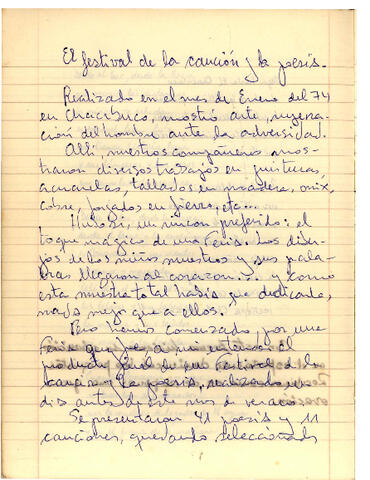 El festival de la canción y la poesía.
Realizado en el mes de Enero del 74
en Chacabuco, mostró arte, supera-
ción del hombre ante la adversidad.
Allí, nuestros compañeros mos-
traron diversos trabajos en pinturas,
acuarelas, tallados en madera, onix,
cobre, forjados en fierro, etc...
Hubo si, un rincon preferido: el
toque mágico de una Feria. Los dibu-
jos de los niños nuestros y sus pala-
bras llegaron al corazon... y como
esta muestra total habia que dedicarla,
nada mejor que a ellos.
Pero hemos comenzado, por una
Feria que fue a no
producto final de un Festival de la
Canción y la poesía, realizado un
dia antes de este mes de verano
Se presentaron 41 poesia y 11
canciones, quedando seleccionads